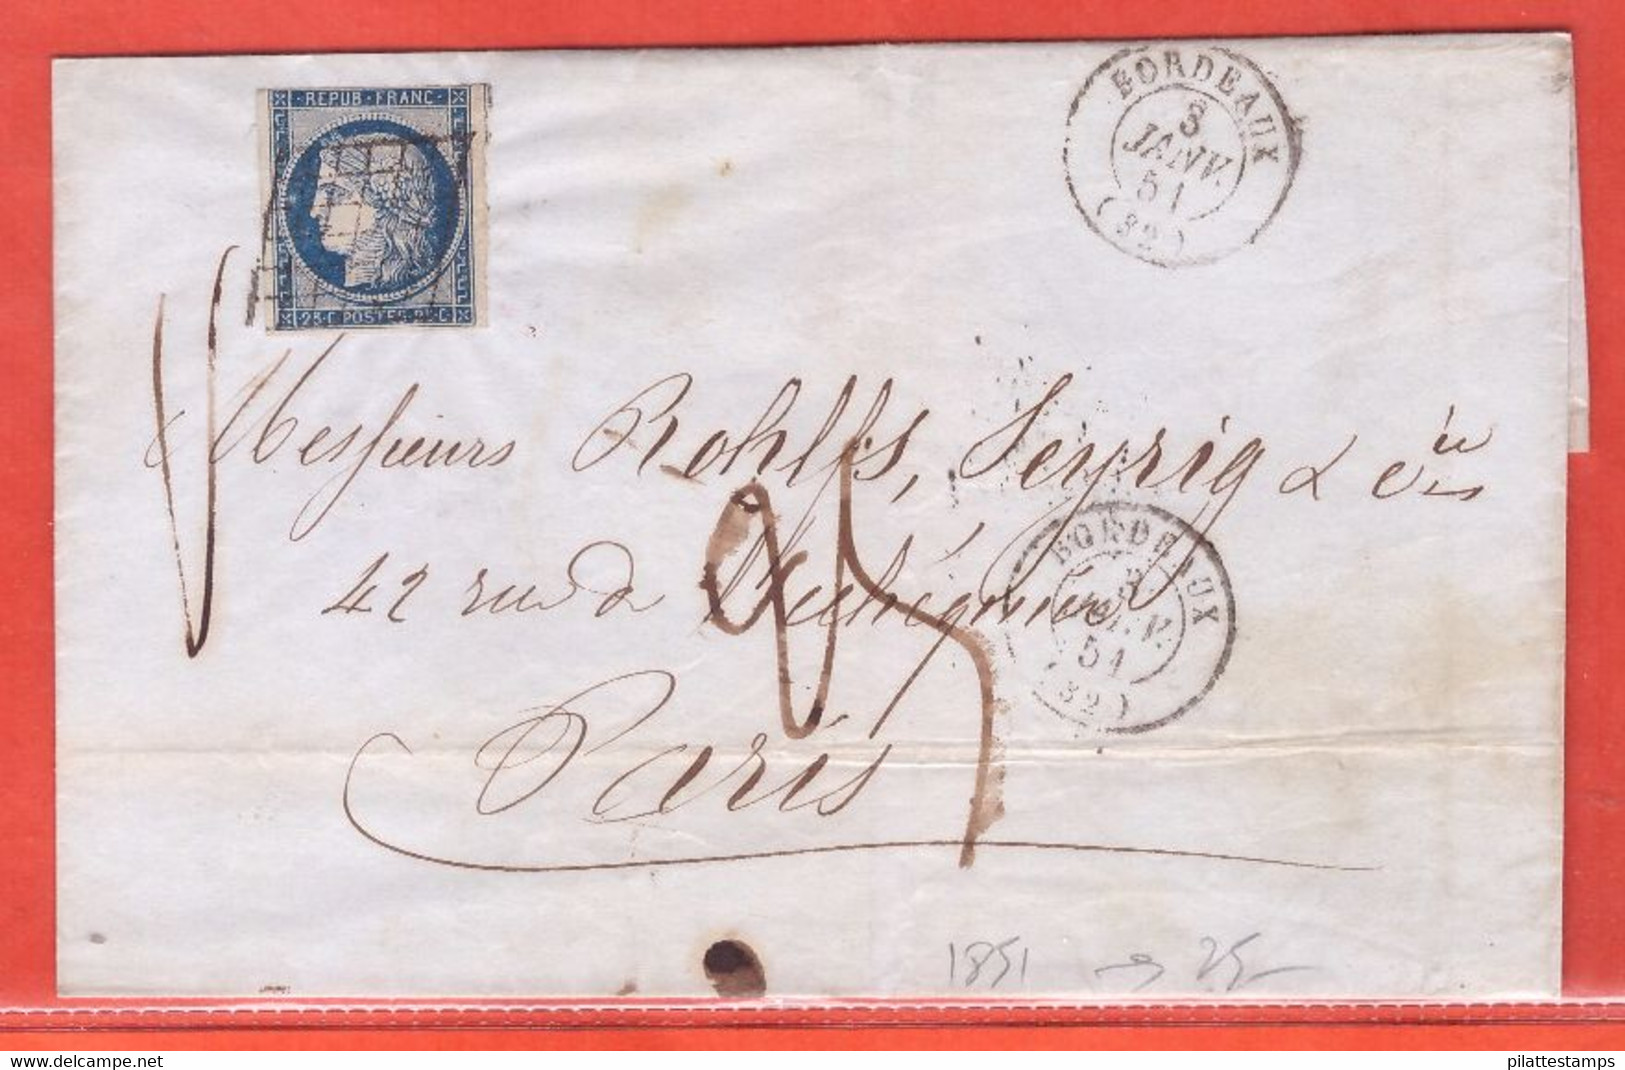 REPUB·FRANC·
25·C POSTES 25·C
BORDEAUX
3
JANV.
51
(32)
Messieurs Rohlfs, Seyrig & Cie
42 rue de
25
Paris
BORDEAUX
3
JANV.
51
(32)
1851 25
www.delcampe.net
pilattestamps